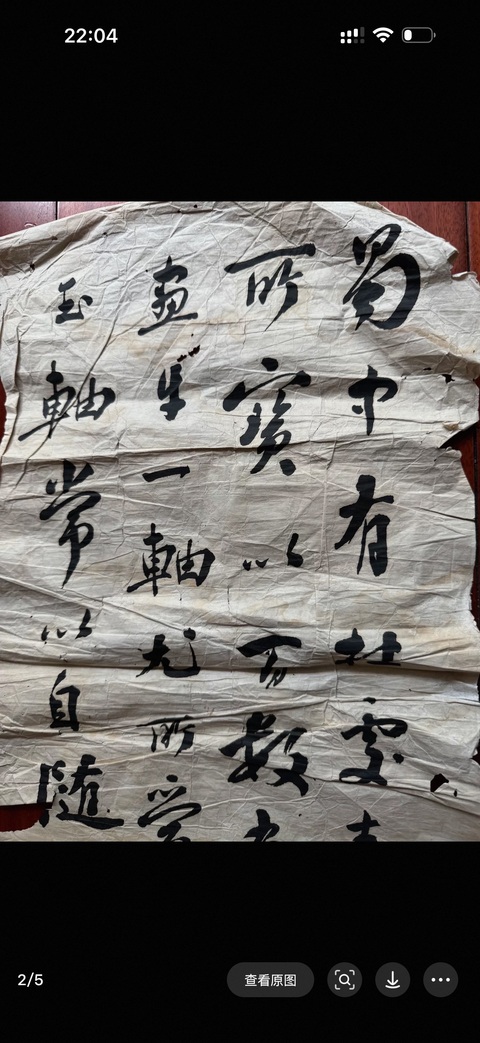 22:04
蜀中有杜處
所寶以百數
畫牛一軸尤所
玉軸常以自隨
2/5
查看原图